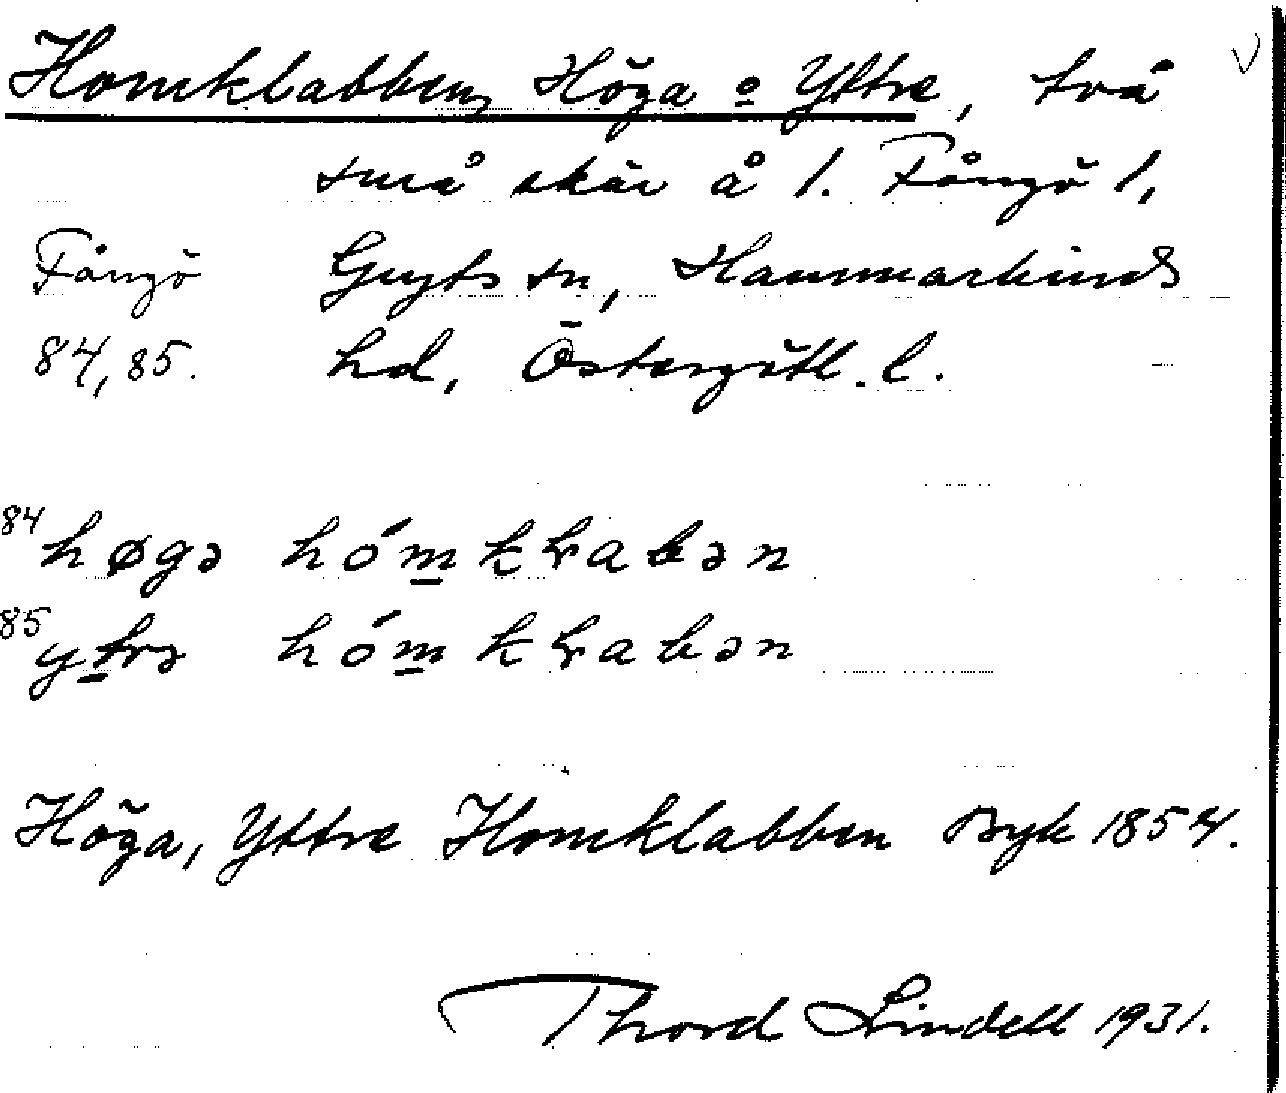 Homklabben, Höga o Yttre, två
små skär å 1. Fångö 1,
Fångö Gryts sn, Hammarkinds
84, 85. hd, Östergötl. l.
84 høgə hómkɽabən
85 ytrə hómkɽabən
Höga, Yttre Homklabben Byk 1854.
Thord Lindell 1931.